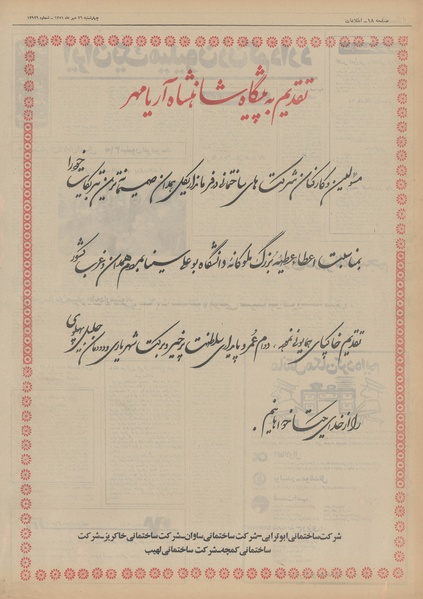 صفحه ۱۸ - اطلاعات
تقدیم به پیشگاه شاهنشاه آریامهر
مسئولین و کارکنان شرکت های ساختمانی در فرمانداریکل همدان صمیمانه ترین تبریکات خود را
بمناسبت اعطاء عطیه بزرگ ملوکانه دانشگاه بوعلی سینا بمردم همدان و غرب کشور
تقدیم خاکپای همایونی نموده، دوام عمر و پایداری سلطنت پرخیر و برکت شهریاری و دودمان جلیل پهلوی
را از خدای یکتا خواهانیم.
شرکت ساختمانی ابوترابی-شرکت ساختمانی ساوان-شرکت ساختمانی خاکریز-شرکت
ساختمانی کمجه-شرکت ساختمانی لهیب